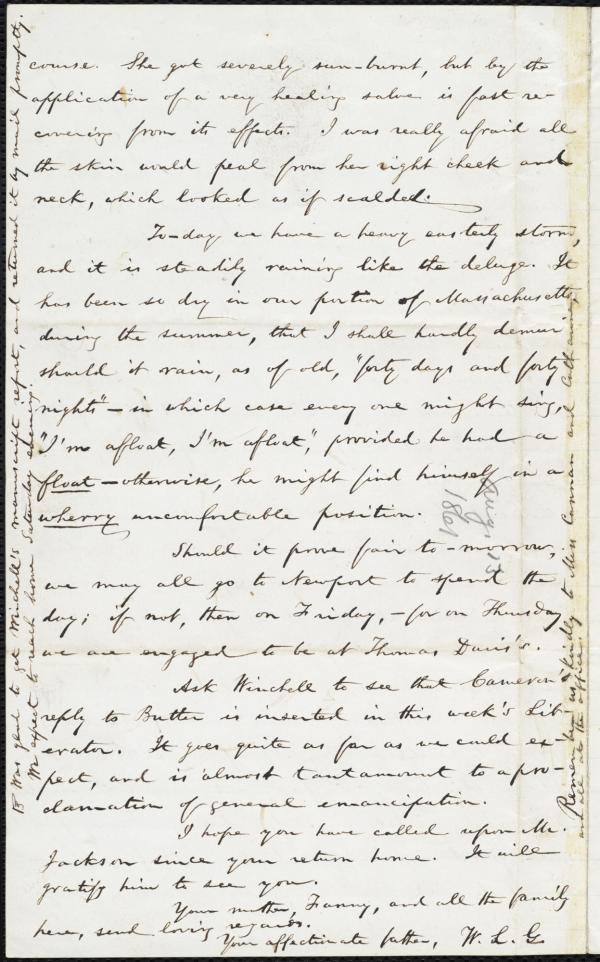 course. She got severely sun-burnt, but by the
application of a very healing salve is fast re-
covering from its effects. I was really afraid all
the skin would peal from her right cheek and
neck, which looked as if scalded.
To-day we have a heavy easterly storm,
and it is steadily raining like the deluge. It
has been so dry in our portion of Massachusetts,
during the summer, that I shall hardly demur
should it rain, as of old, "forty days and forty
nights"—in which case every one might sing,
"I'm afloat, I'm afloat", provided he had a
float—otherwise, he might find himself in a
wherry uncomfortable position.
Should it prove fair to-morrow,
we may all go to Newport to spend the
day; if not, then on Friday,—for on Thursday
we are engaged to be at Thomas Davis's.
Ask Winchell to see that Cameron's
reply to Butler is inserted in this week's Lib-
erator. It goes quite as far as we could ex-
pect, and is almost tantamount to a pro-
clamation of general emancipation.
I hope you have called upon Mr.
Jackson since your return home. It will
gratify him to see you.
Your mother, Fanny, and all the family
here, send loving regards.
Your affectionate father, W. L. G.
Was glad to get Winchell's manuscript report, and returned it by mail promptly.
We expect to reach home Saturday evening.
Remember us kindly to Miss and Catharine,
and all at the office.
Aug. 13
1861